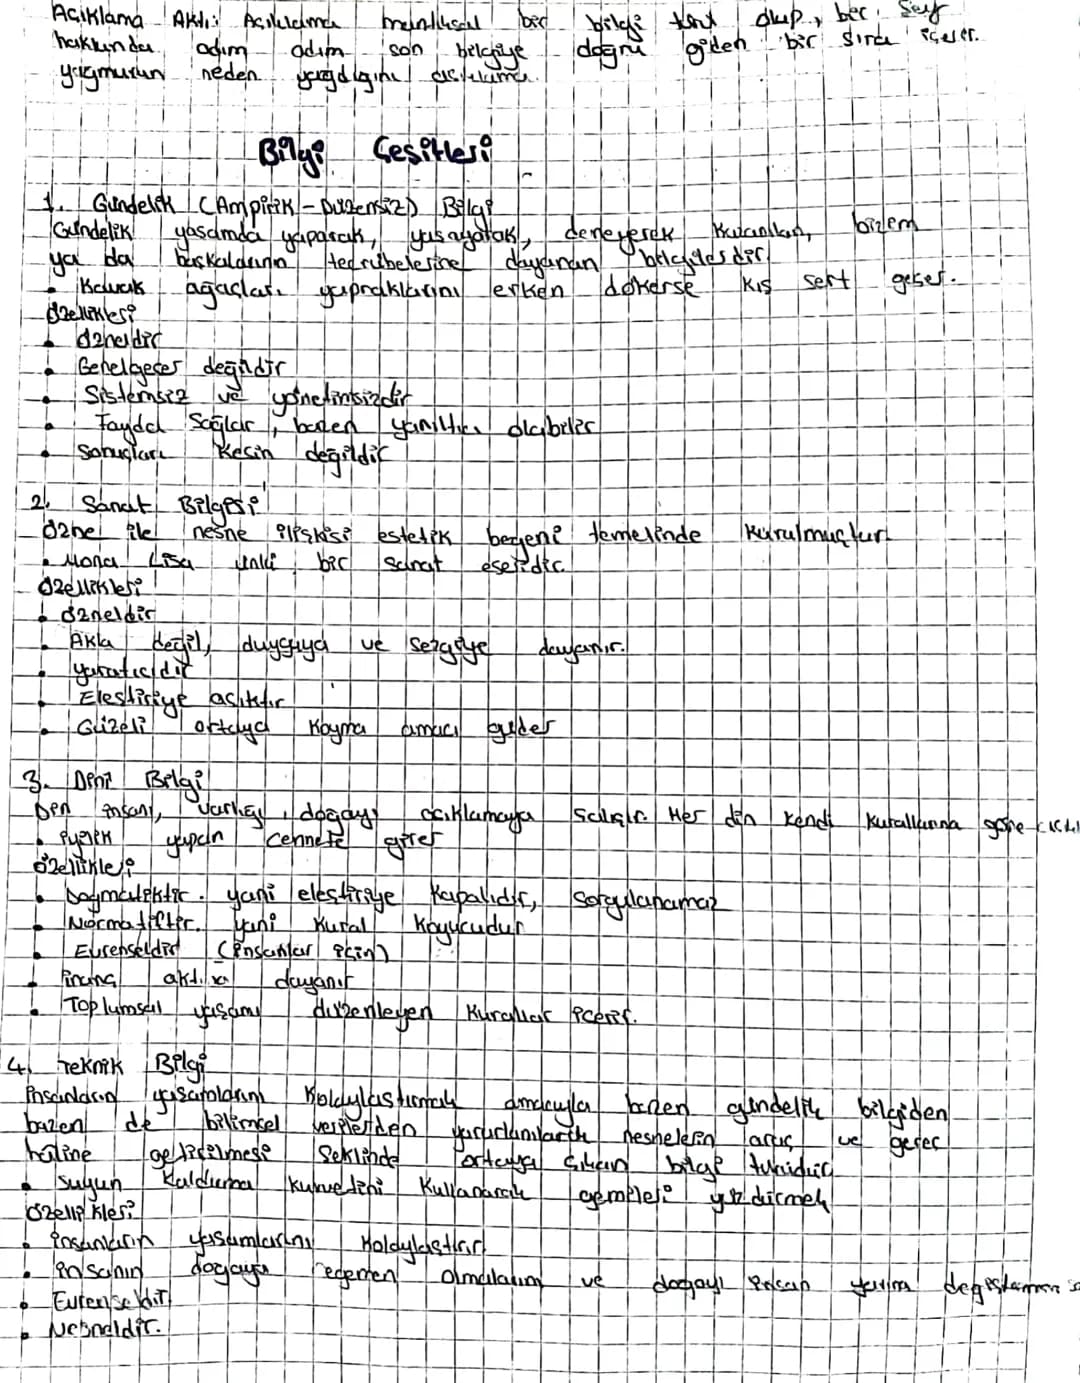 Açıklama Aktı: Açıklama mantıksal bir bilgi türü olup, bir şey
hakkında adım adım son bilgiye doğru giden bir sıra içerir.
yağmurun neden yağdığını açıklama.
Bilgi Çeşitleri
1. Gündelik (Ampirik - Düzensiz) Bilgi
Gündelik yaşamda yaparak, yaşayarak, deneyerek kazanılan, bizem
ya da başkalarının tecrübelerine dayanan bilgilerdir.
• Kavak ağaçları yapraklarını erken dökerse kış sert geçer.
Özellikleri
• Özneldir
• Genelgeçer değildir
• Sistemsiz ve yöntemsizdir
• Fayda Sağlar, bazen yanıltıcı olabilir
• Sonuçları Kesin değildir
2. Sanat Bilgisi
Özne ile nesne ilişkisi estetik beğeni temelinde Kurulmuştur
• Mona Lisa ünlü bir sanat eseridir.
Özellikleri
• Özneldir
• Akla değil, duyguya ve sezgiye dayanır.
• Yaratıcıdır
• Eleştiriye açıktır
• Güzeli ortaya Koyma amacı güder
3. Dini Bilgi
Din insanı, varlığı, doğayı açıklamaya çalışır. Her din kendi kurallarına göre
• İyilik yapan cennete girer
Özellikleri
• Dogmatiktir. yani eleştiriye Kapalıdır, Sorgulanamaz
• Normatiftir. Yani Kural Koyucudur
• Evrenseldir (insanlar için)
• İnanç aktına dayanır
• Toplumsal yaşamı düzenleyen Kurallar içerir.
4. Teknik Bilgi
İnsanların yaşamlarını Kolaylaştırmak amacıyla bazen gündelik bilgiden
bazen de bilimsel verilerden yararlanılarak nesnelerin araç ve gereç
haline getirilmesi Şeklinde ortaya çıkan bilgi türüdür.
• Suyun Kaldırma Kuvvetini Kullanarak gemileri yüzdürmek
Özellikleri
• İnsanların yaşamlarını Kolaylaştırır
• İnsanın doğaya egemen olmalarını ve doğayı insan yararına
• Evrenseldir
• Nesneldir.